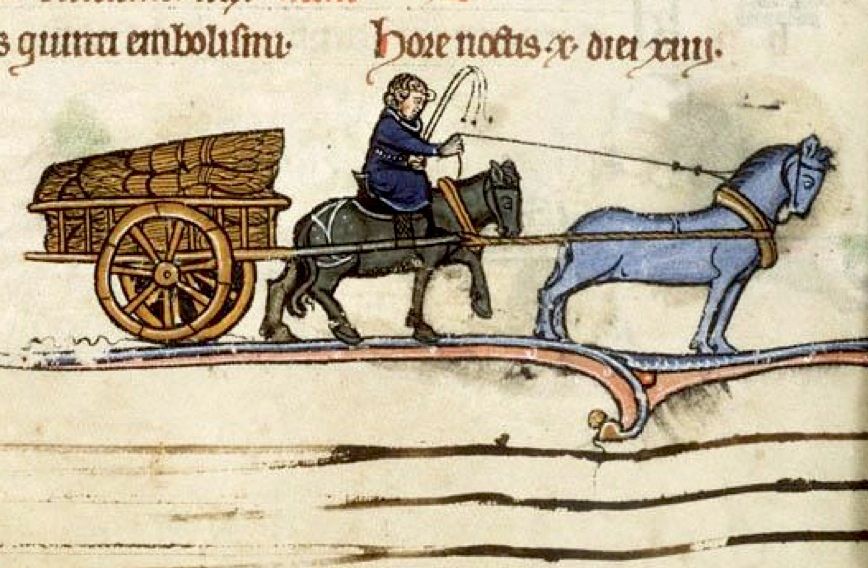 s quinti embolismi. hore noctis .x. diei xiiii.